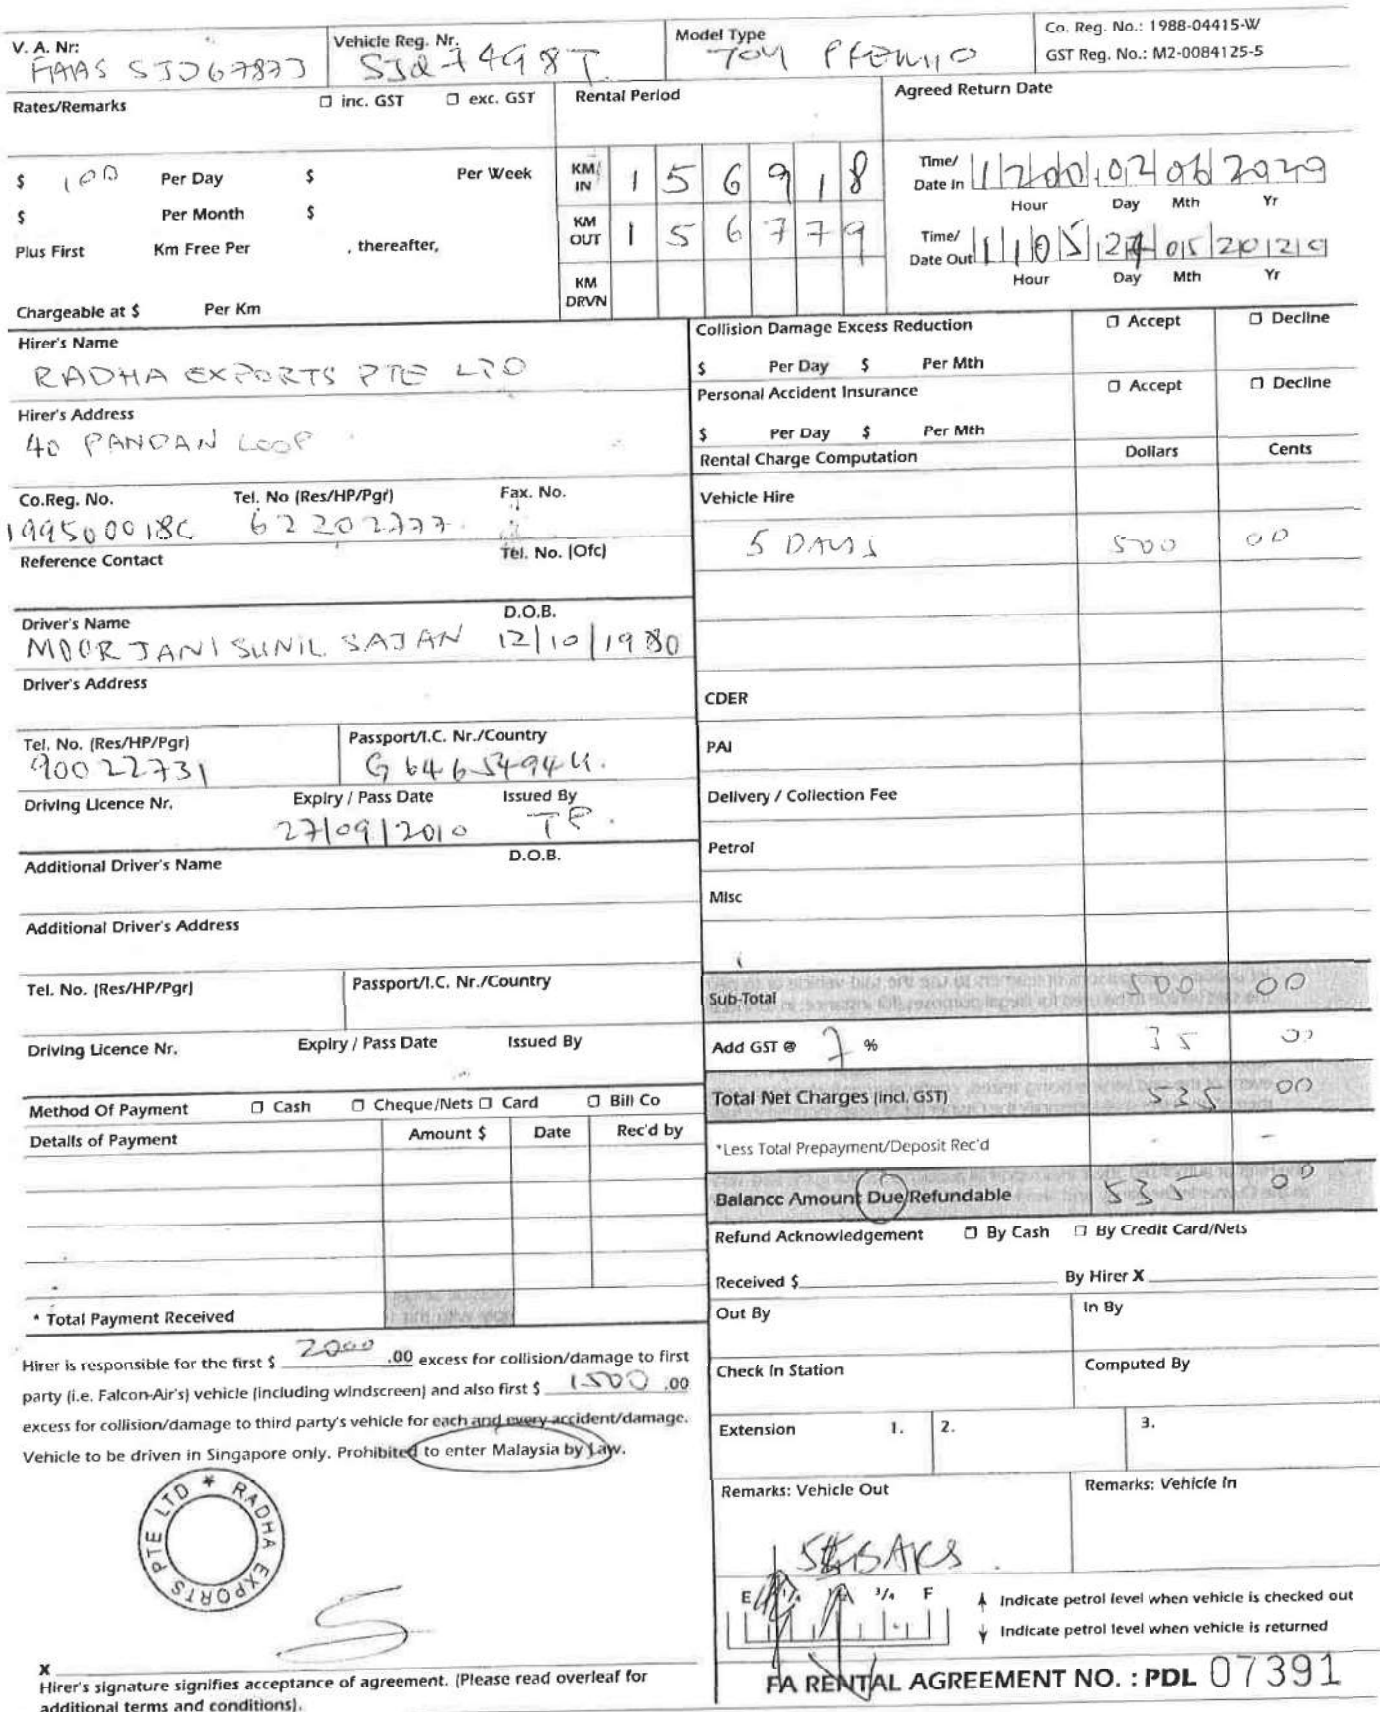 V. A. Nr:
Vehicle Reg. Nr.
Model Type
Co. Reg. No.: 1988-04415-W
FAAS SJD6787J
SJQ7498T
TOY PREMIO
GST Reg. No.: M2-0084125-5
Rates/Remarks
inc. GST
exc. GST
Rental Period
Agreed Return Date
$ 100 Per Day $ Per Week
KM IN 1 5 6 9 1 8
Time/ Date In 1200 02 06 2020
Hour Day Mth Yr
$ Per Month $
KM OUT 1 5 6 7 7 9
Plus First Km Free Per , thereafter,
Time/ Date Out 1105 27 05 2020
Hour Day Mth Yr
KM DRVN
Chargeable at $ Per Km
Hirer's Name
RADHA EXPORTS PTE LTD
Hirer's Address
40 PANDAN LOOP
Co.Reg. No. Tel. No (Res/HP/Pgr) Fax. No.
199500018C 62202777
Reference Contact Tel. No. (Ofc)
Driver's Name D.O.B.
MOORJANI SUNIL SAJAN 12/10/1980
Driver's Address
Tel. No. (Res/HP/Pgr) Passport/I.C. Nr./Country
90022731 G6465494U.
Driving Licence Nr. Expiry / Pass Date Issued By
27/09/2010 TP.
Additional Driver's Name D.O.B.
Additional Driver's Address
Tel. No. (Res/HP/Pgr) Passport/I.C. Nr./Country
Driving Licence Nr. Expiry / Pass Date Issued By
Method Of Payment Cash Cheque/Nets Card Bill Co
Details of Payment Amount $ Date Rec'd by
* Total Payment Received
Hirer is responsible for the first $ 2000 .00 excess for collision/damage to first
party (i.e. Falcon-Air's) vehicle (including windscreen) and also first $ 1500 .00
excess for collision/damage to third party's vehicle for each and every accident/damage.
Vehicle to be driven in Singapore only. Prohibited to enter Malaysia by Law.
RADHA EXPORTS PTE LTD *
X
Hirer's signature signifies acceptance of agreement. (Please read overleaf for
additional terms and conditions).
Collision Damage Excess Reduction Accept Decline
$ Per Day $ Per Mth
Personal Accident Insurance Accept Decline
$ Per Day $ Per Mth
Rental Charge Computation Dollars Cents
Vehicle Hire
5 DAYS 500 00
CDER
PAI
Delivery / Collection Fee
Petrol
Misc
Sub-Total 500 00
Add GST @ 7 % 35 00
Total Net Charges (incl. GST) 535 00
*Less Total Prepayment/Deposit Rec'd - -
Balance Amount Due/Refundable 535 00
Refund Acknowledgement By Cash By Credit Card/Nets
Received $ By Hirer X
Out By In By
Check In Station Computed By
Extension 1. 2. 3.
Remarks: Vehicle Out Remarks: Vehicle In
BARS
E 1/4 3/4 F
Indicate petrol level when vehicle is checked out
Indicate petrol level when vehicle is returned
FA RENTAL AGREEMENT NO. : PDL 07391